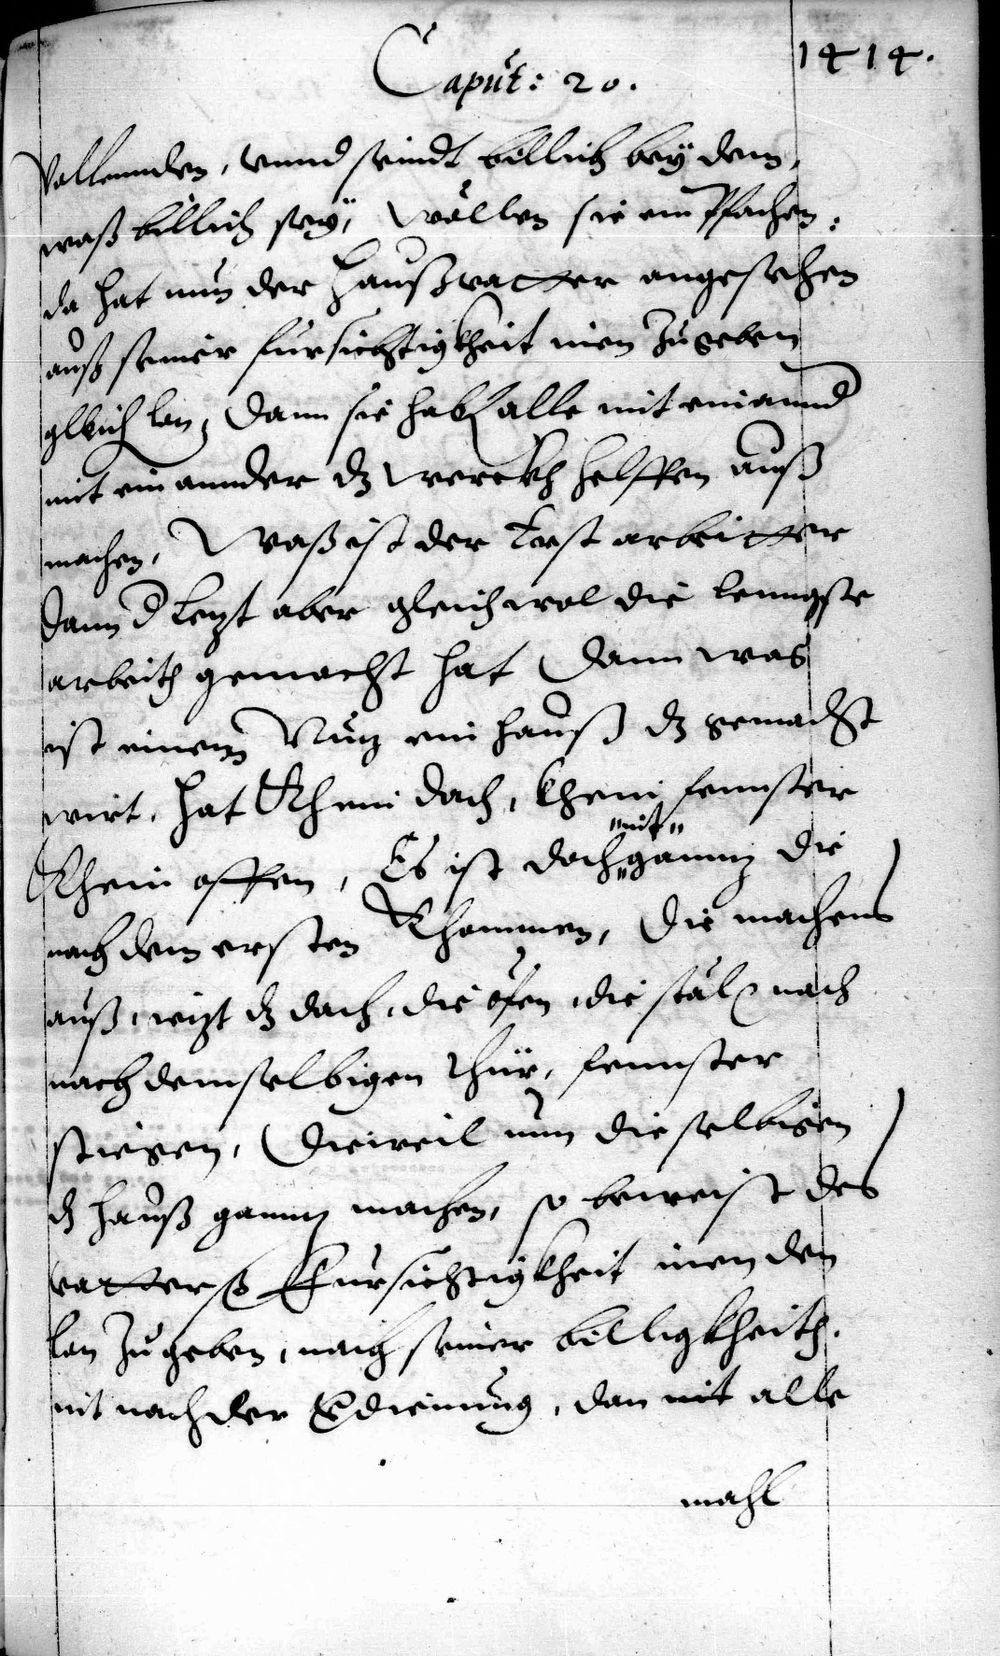 Caput: 20.
1414.
Vollennden, vnnd seindt billich beÿ dem,
waß billich seÿ, Wöllen sie ein Pfachen:
da hat nun der Haußvatter angesehen
auß seiner fursichtigkheit inen Zu geben
gleich lon, dann sie hab alle mit einannd
mit ein annder dz werckh helffen auß
machen, Waß ist der Erst arbeitter
dann d letzt aber gleichwol die lenngste
arbeith gemacht hat dann was
ist einem Nutz ein hauß dz gemacht
wirt, hat Khein dach, khein fennster
Khein offen, Es ist doch "nit" gannz die
nach dem ersten Khommen, die machens
auß, iezt dz dach, die öfen, die stäl, nach
nach demselbigen thür, fennster
stiegen, Dieweil nun dieselbigen
dz hauß gannz machen, so beweist des
vatterß Fursichtigkheit inen den
lon Zu geben, nach seiner billigkheith.
nit nach der Verdienung, dan nit alle
mahl